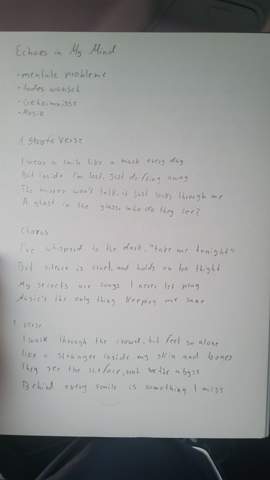 Echoes in My Mind
- mentale probleme
- Todes wunsch
- Geheimnisse
- Musik
1 strophe verse
I wear a smile like a mask every day
But inside I'm lost, just drifing away
The mirror won't talk, it just looks through me
A ghost in the glass, who do they see?
Chorus
I've whisperd to the dark, "take me tonight"
But silence is cruel, and holds on too thight
My secrets are songs I never let
Music's the only thing keeping me sane
verse
I walk through the crowd, but feel so alone
like a stranger inside my skin and bones
They see the surface, not the abyss
Behind every smile is something I miss